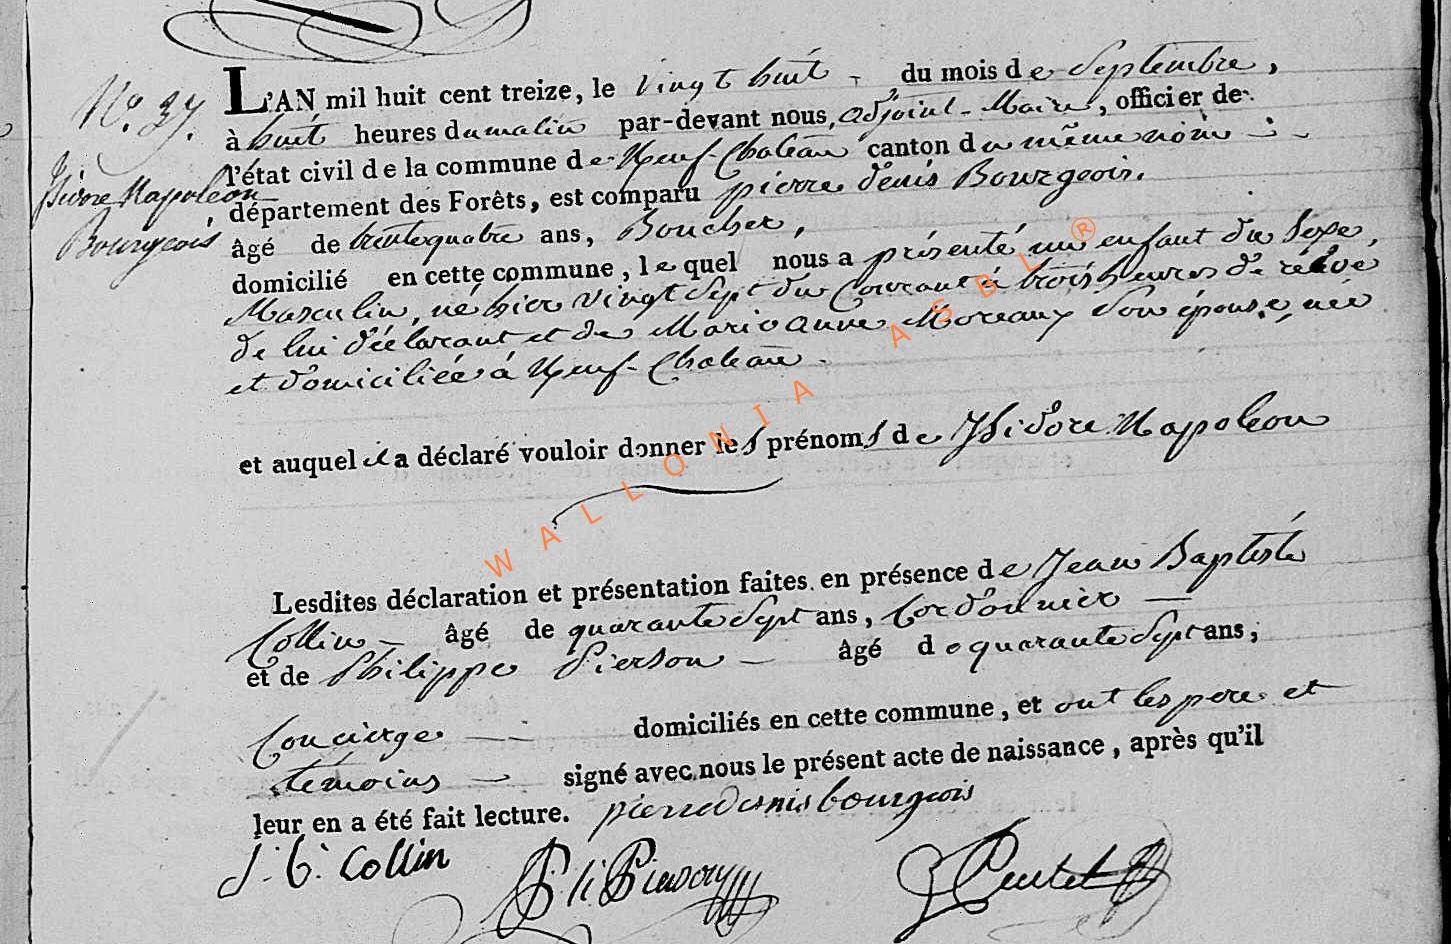 N.o 37.
Isidore Napoléon
Bourgeois
L'AN mil huit cent treize, le vingt huit du mois de Septembre,
à huit heures du matin par-devant nous, adjoint-Maire, officier de
l'état civil de la commune de Neuf-Chateau canton du même nom
département des Forêts, est comparu pierre denis Bourgeois.
âgé de trente quatre ans, Boucher,
domicilié en cette commune, lequel nous a présenté un enfant du Sexe,
Masculin, né hier vingt Sept du Courant à trois heures de rélevé
de lui déclarant et de Marie anne Moreaux Son épouse, née
et domiciliée à Neuf-Chateau.
et auquel il a déclaré vouloir donner les prénoms de Isidore Napoleon
Lesdites déclaration et présentation faites en présence de Jean Baptiste
Collin âgé de quarante Sept ans, Cordonnier
et de Philippe Pierson âgé de quarante Sept ans,
Concierge domiciliés en cette commune, et ont les pere et
témoins signé avec nous le présent acte de naissance, après qu'il
leur en a été fait lecture. pierre denis bourgeois
J. b. Collin Ph. Pierson
WALLONIA ASBL ®